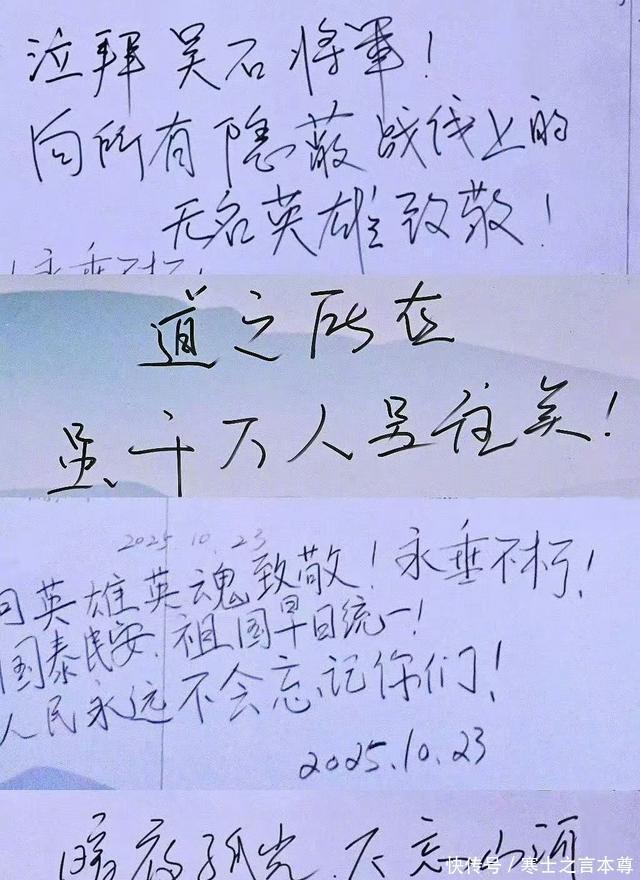 泣拜吴石将军！
向所有隐蔽战线上的
无名英雄致敬！
永垂不朽！
道之所在
虽千万人吾往矣！
2025.10.23
向英雄英魂致敬！永垂不朽！
国泰民安，祖国早日统一！
人民永远不会忘记你们！
2025.10.23
暗夜孤光，不忘山河
快传号/寒士之言本尊